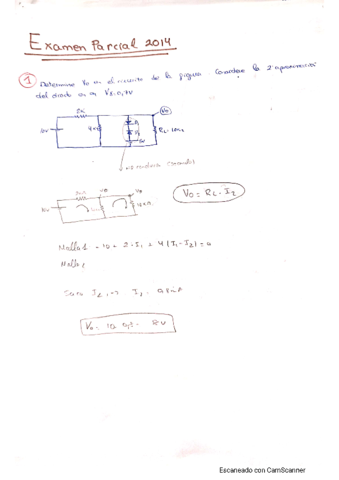 Examen Parcial 2014
1 Determine Vo en el circuito de la figura. Considere la 2ª aproximación
del diodo con Vx=0,7V
2k
Vo
10V
4k
D1
D2
RL=10k
no conduce (cortado)
Vo
Vo
10V
Vo = RL · I2
Malla 1 - 10 + 2·I1 + 4(I1-I2)=0
Malla 2
Vo = 10 · 0,8 = 8V
Escaneado con CamScanner